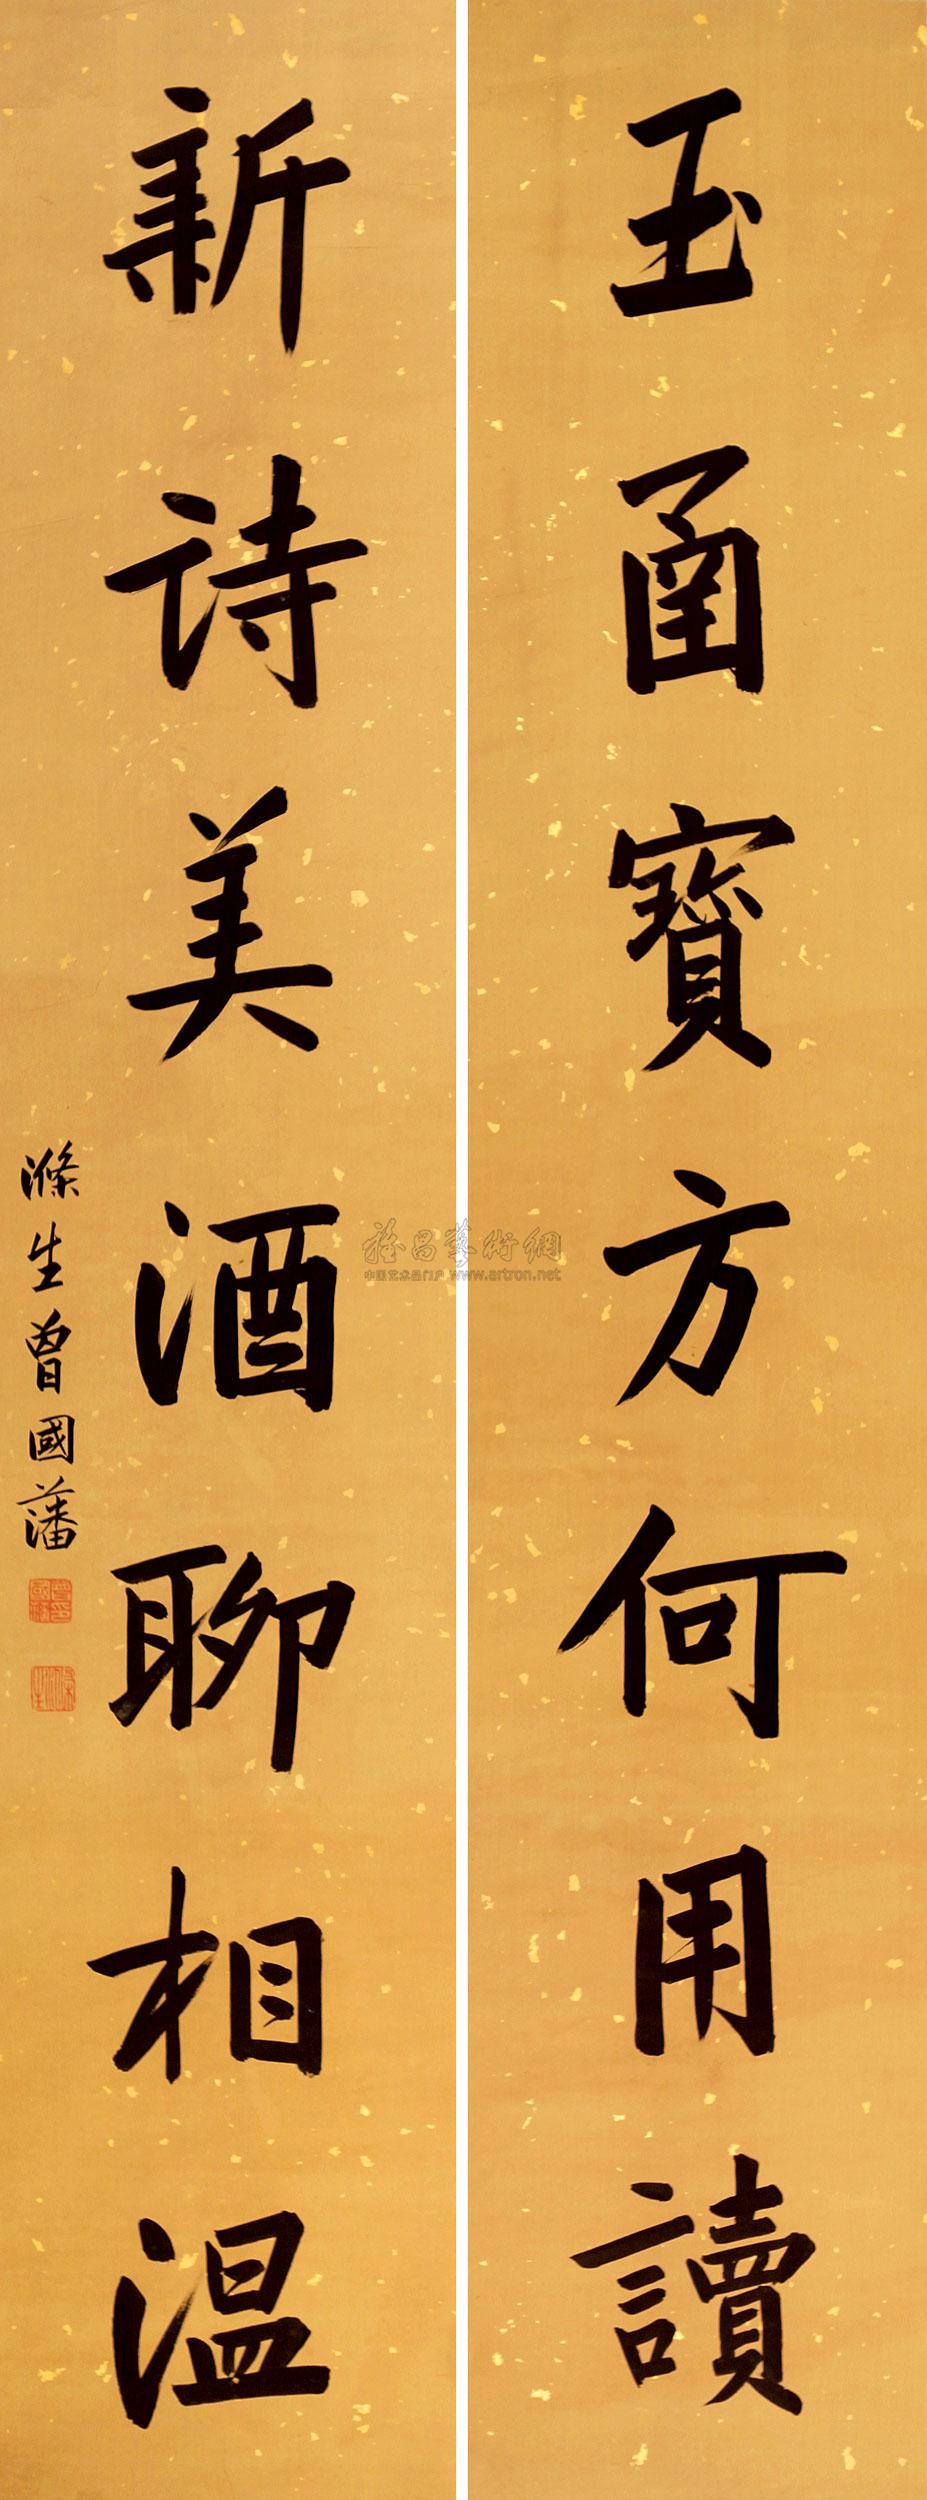 玉函寶方何用讀
新詩美酒聊相温
滌生曾國藩
雅昌藝術網
中国艺术品门户 www.artron.net